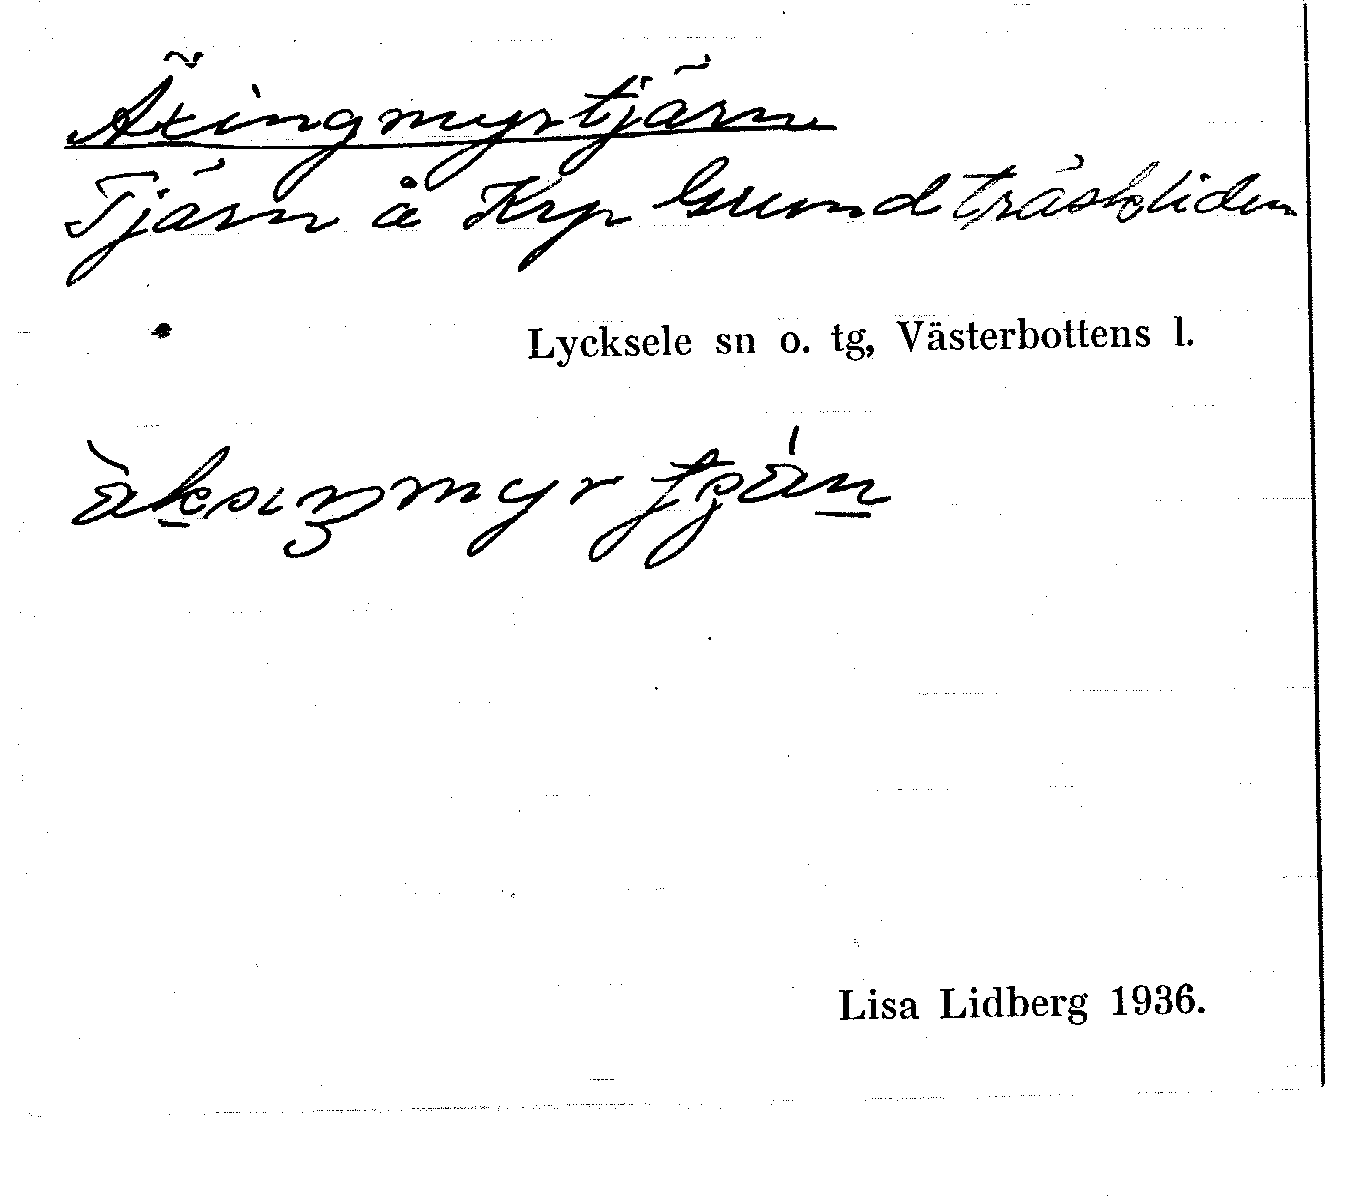 Äxingmyrtjärn
Tjärn å Krp Grundträskliden
Lycksele sn o. tg, Västerbottens l.
Lisa Lidberg 1936.